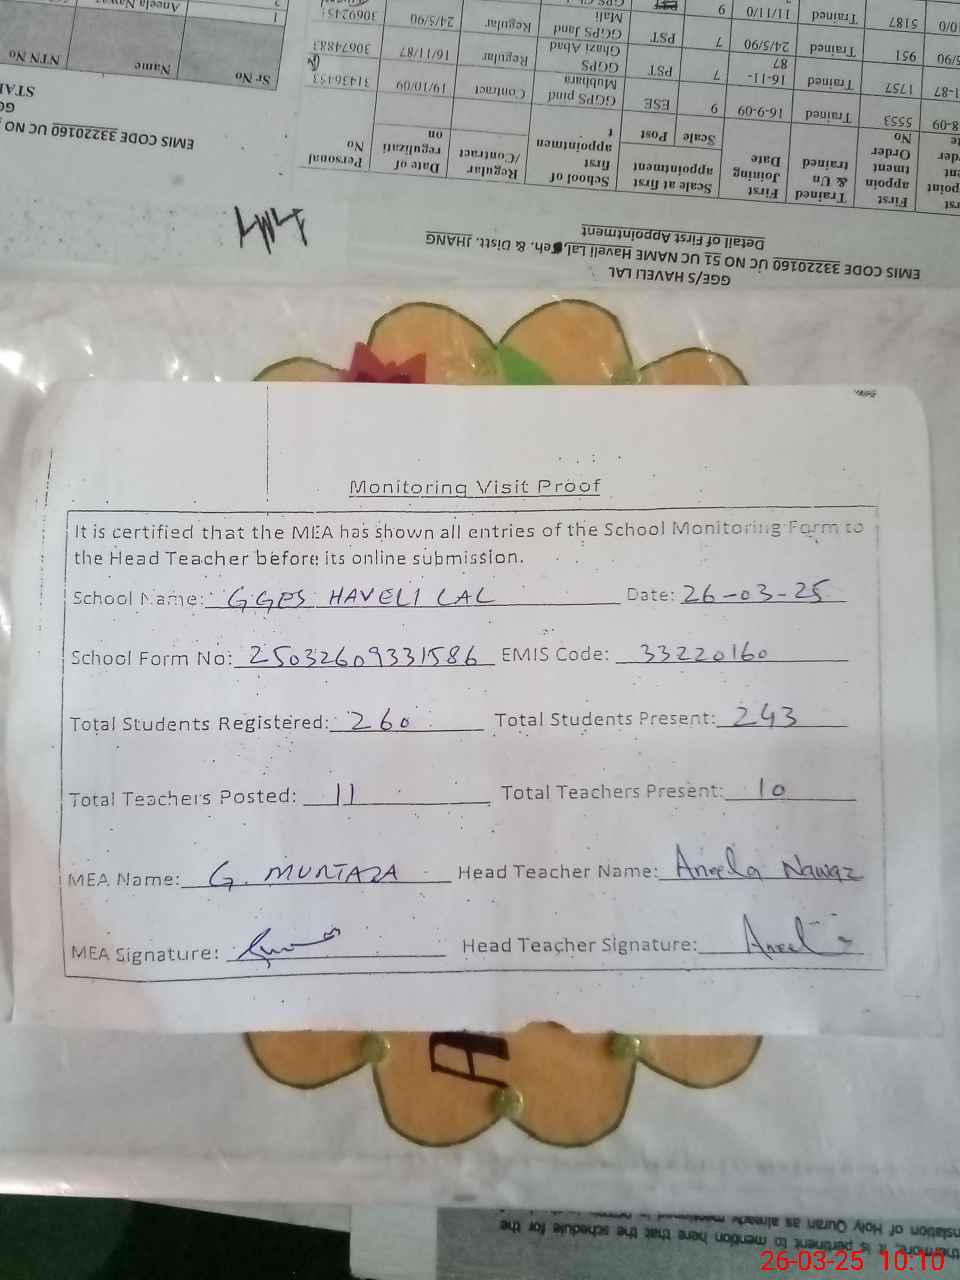 Monitoring Visit Proof
It is certified that the MEA has shown all entries of the School Monitoring Form to
the Head Teacher before its online submission.
School Name: GGES HAVELI LAL Date: 26-03-25
School Form No: 25032609331586 EMIS Code: 33220160
Total Students Registered: 260 Total Students Present: 243
Total Teachers Posted: 11 Total Teachers Present: 10
MEA Name: G. MURTAZA Head Teacher Name: Aneela Nawaz
MEA Signature: Head Teacher Signature: Aneela
GGE/S HAVELI LAL
EMIS CODE 33220160 UC NO 51 UC NAME Haveli Lal, Teh. & Distt. JHANG
Detail of First Appointment
First appoin tment Order No
Trained & Un trained
First Joining Date
Scale at first appointment
Scale Post
School of first appointmen t
Regular /Contract
Date of regulizati on
Personal No
5553 Trained 16-9-09 9 ESE GGPS pind Mubbara Contract 19/10/09 31436453
1757 Trained 16-11-87 7 PST GGPS Ghazi Abad Regular 16/11/87 30674883
951 Trained 24/5/90 7 PST GGPS Jand Mali Regular 24/5/90
5187 Trained 11/11/0 9
EMIS CODE 33220160 UC NO
Sr No Name NTN No
1 Aneela Nawaz
A
nslation of Holy Quran as already
it is pertinent to mention here that the schedule for the
26-03-25 10:10